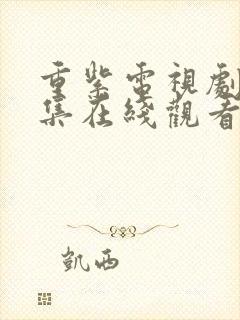 重紫電視劇
集在綫觀看
凱西